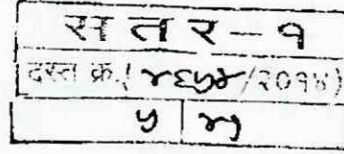 स त र - १
दस्त क्र. ( ४६५४/२०१४)
५ | ४५